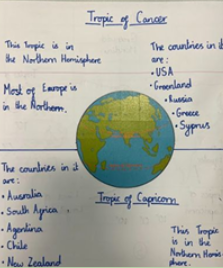 Tropic of Cancer
This Tropic is in
the Northern Hemisphere
Most of Europe is
in the Northern.
The countries in it
are :
• USA
• Greenland
• Russia
• Greece
• Syprus
The countries in it
are :
• Ausralia
• South Africa
• Agentina
• Chile
• New Zealand
Tropic of Capricorn
This Tropic
is in the
Northern Hemis
phere.